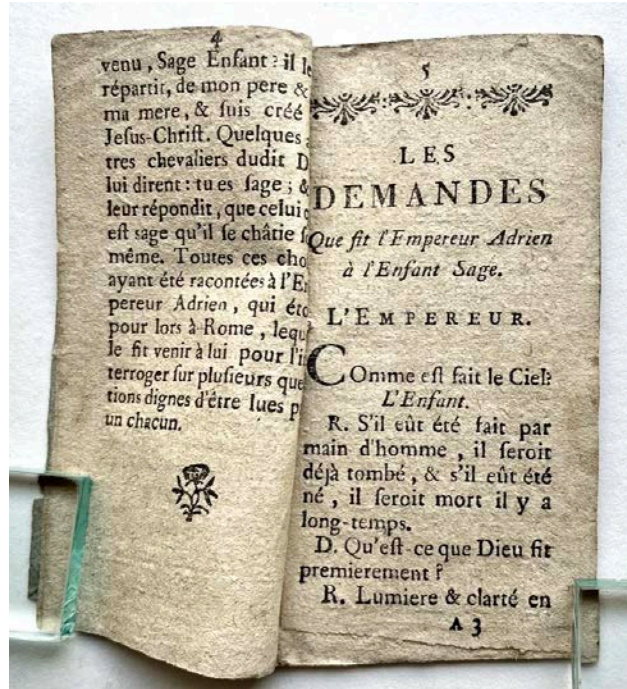 4
venu, Sage Enfant ? il
répartit, de mon pere &
ma mere, & ſuis créé
Jeſus-Chriſt. Quelques
tres chevaliers dudit D
lui dirent : tu es ſage ; &
leur répondit, que celui
eſt sage qu'il ſe châtie
même. Toutes ces cho
ayant été racontées à l'E
pereur Adrien, qui éto
pour lors à Rome, lequ
le fit venir à lui pour l'i
terroger ſur pluſieurs que
tions dignes d'être lues p
un chacun.
5
LES
DEMANDES
Que fit l'Empereur Adrien
à l'Enfant Sage.
L'EMPEREUR.
COmme eſt fait le Ciel?
L'Enfant.
R. S'il eût été fait par
main d'homme, il ſeroit
déjà tombé, & s'il eût été
né, il ſeroit mort il y a
long-temps.
D. Qu'eſt-ce que Dieu fit
premierement ?
R. Lumiere & clarté en
A 3